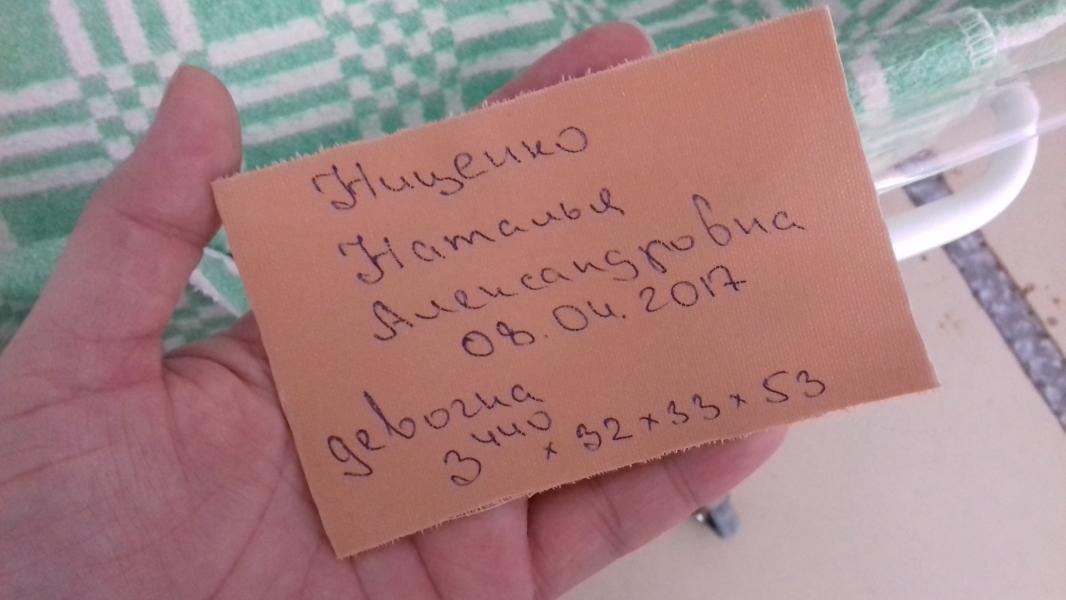 Нищенко
Наталья
Александровна
08.04.2017
девочка
3440 × 32 × 33 × 53